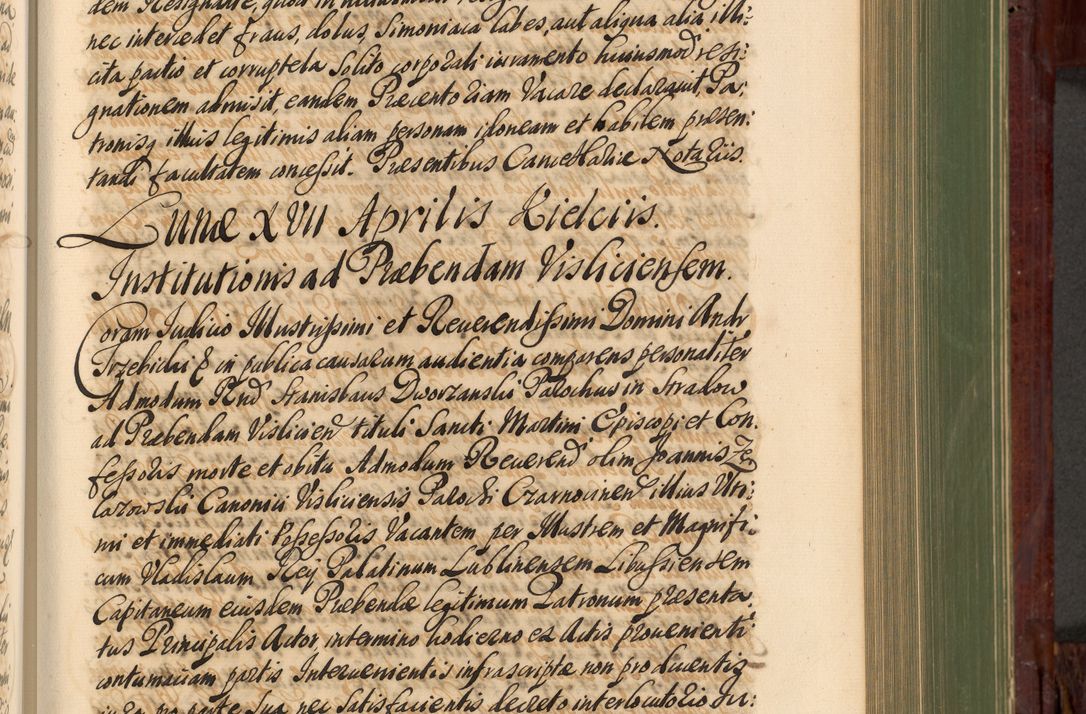 dem Resignare, quod in huiusmodi
nec intercedet fraus, dolus, Simoniaca labes, aut aliqua alia illi:
cita pactio et corruptela solito corporali iuramento huiusmod resi:
gnationem admisit, eandem Præcentoriam Vacare declarauit, Pa:
tronisq illius legitimis aliam personam idoneam et habilem præsen:
tandi facultatem concessit. Præsentibus Cancellariæ Notariis.
Lunæ XVII Aprilis Kielciis.
Institutionis ad Præbendam Visliciensem.
Coram Iudicio Illustrissimi et Reuerendissimi Domini Andr
Trzebicki & in publica causarum audientia comparens personaliter
Admodum Rnd Stanislaus Dworzanski Parochus in Stradow
ad Præbendam Vislicien tituli Sancti Martini Episcopi et Con:
fessoris morte et obitu Admodum Reuerend olim Joannis Ze
lazowski Canonici Visliciensis Parochi Czarnocinen illius Vlti:
mi et immediati Possessoris Vacantem per Illustrem et Magnifi:
cum Vladislaum Rey Palatinum Lublinensem Libussiensem
Capitaneum eiusdem Præbendæ legitimum Patronum præsenta:
tus Principalis Actor, in termino hodierno ex Actis prouenienti
contumaciam partis Interuenientis infrascriptæ non producentis
iura pro parte sua nec satisfacientis decreto interlocutorio Iu: